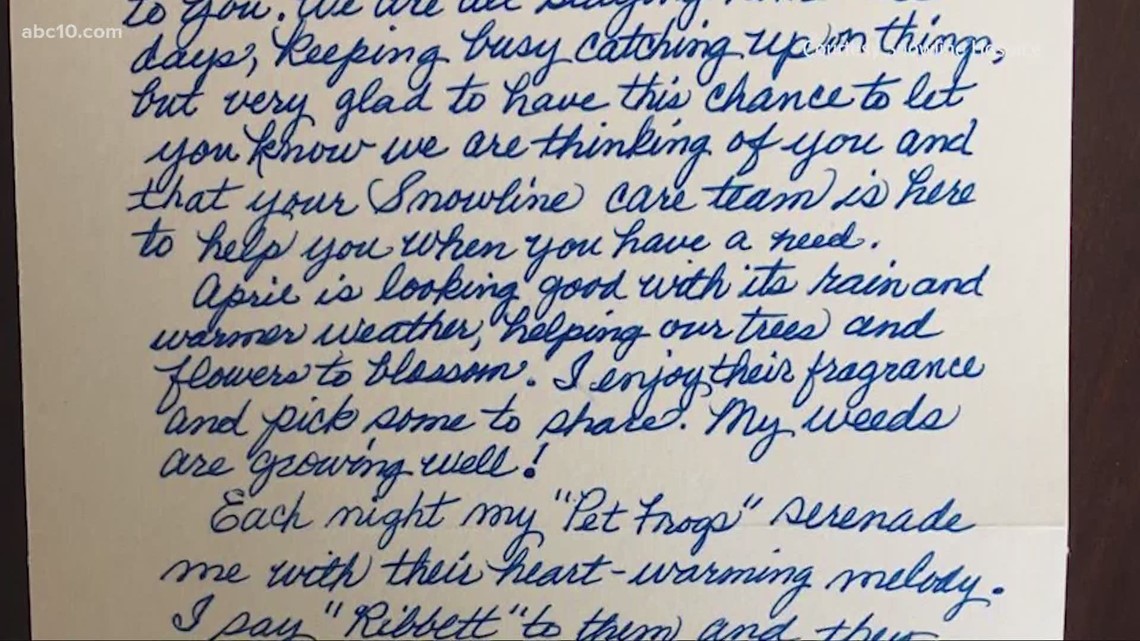 to you. We are all staying home
abc10.com
days, keeping busy catching up on things,
Courtesy: Snowline Hospice
but very glad to have this chance to let
you know we are thinking of you and
that your Snowline care team is here
to help you when you have a need.
April is looking good with its rain and
warmer weather, helping our trees and
flowers to blossom. I enjoy their fragrance
and pick some to share. My weeds
are growing well!
Each night my "Pet Frogs" serenade
me with their heart-warming melody.
I say "Ribbett" to them and they